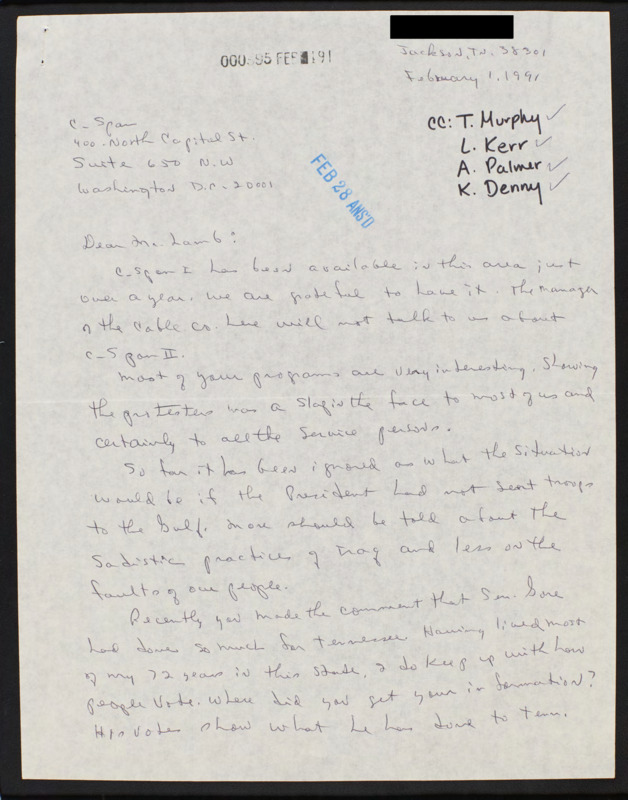 000535 FEB 191
Jackson, Tn. 38301
February 1, 1991
cc: T. Murphy ✓
L. Kerr ✓
A. Palmer ✓
K. Denny ✓
C-Span
400 North Capitol St.
Suite 650 N.W
Washington D.C. 20001
FEB 28 ANS'D
Dear Mr. Lamb:
C-Span I has been available in this area just
over a year. We are grateful to have it. The manager
of the Cable Co. here will not talk to us about
C-Span II.
Most of your programs are very interesting. Showing
the protesters was a slap in the face to most of us and
certainly to all the service persons.
So far it has been ignored as what the situation
would be if the President had not sent troops
to the Gulf. More should be told about the
Sadistic practices of Iraq and less on the
faults of our people.
Recently you made the comment that Sen. Gore
had done so much for Tennessee. Having lived most
of my 72 years in this state, I do keep up with how
people vote. Where did you get your information?
His votes show what he has done to Tenn.